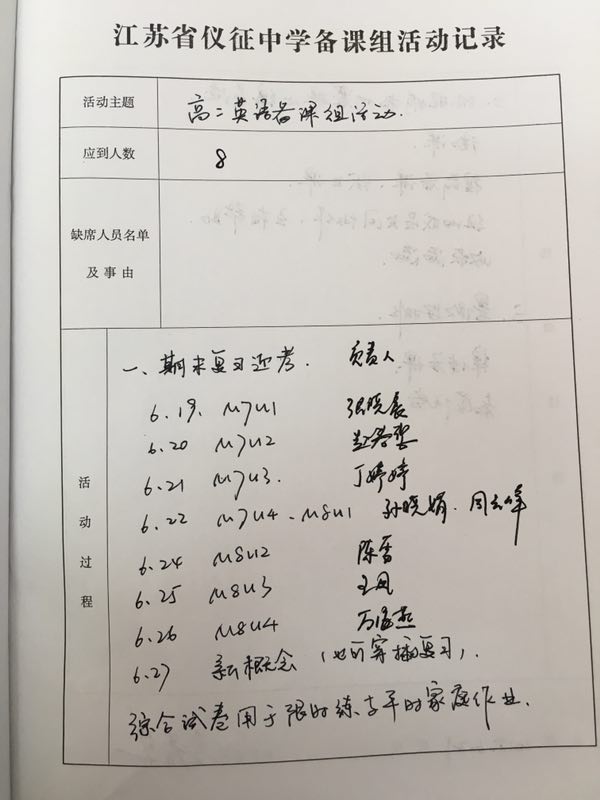 江苏省仪征中学备课组活动记录
活动主题 高二英语备课组活动.
应到人数 8
缺席人员名单
及事由
活动过程
一、期末复习迎考. 负责人
6.19. M7U1 张晓晨
6.20 M7U2
6.21 M7U3. 丁婷婷
6.22 M7U4、M8U1 孙晓娟.
6.24 M8U2 陈香
6.25 M8U3 王凤
6.26 M8U4
6.27 新概念 (也可穿插复习).
综合试卷用于限时练与平时家庭作业.